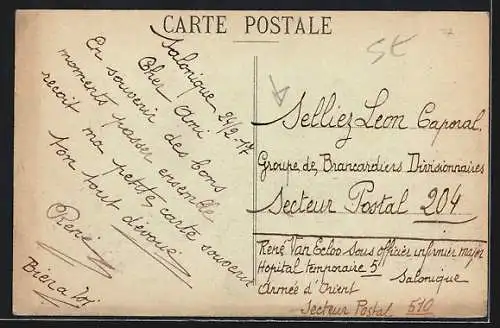 CARTE POSTALE
Salonique 21/2-17
Cher Ami
En souvenir des bons
moments passer ensemble
reçoit ma petite carte souvenir
ton tout dévoué
René
Bien a toi
Selliez Leon Caporal.
Groupe de Brancardiers Divisionnaires
Secteur Postal 204
René Van Ecloo sous officier infirmier major
Hopital temporaire 5 Salonique
Armée d'Orient
Secteur Postal 510